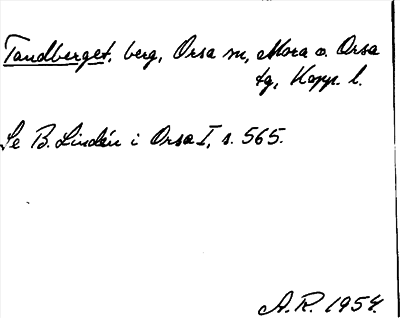 Tandberget, berg, Orsa sn, Mora o. Orsa
tg, Kopp. l.
Se B. Lindén i Orsa I, s. 565.
A.R. 1954.